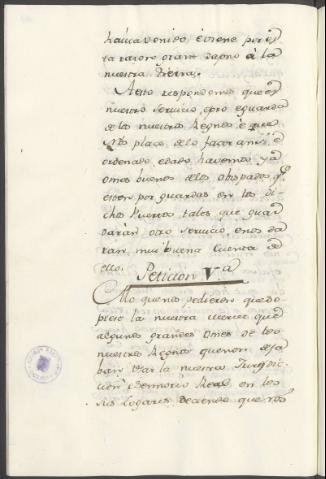 havia venido e viene por esta
ra razon gran dapno à la
nuestra tierra.
A esto respondemos que es
nuestro servicio, e pro e guarda
de los nuestros Regnos è que
Nos place de lo facer ansi, è
ordenado, e dado havemos ya
omes buenos de los obispados qe
esten por guardas en los di-
chos Puertos tales que guar
daràn otro servicio, e nos da
ran mui buena Cuenta de
ello.
Peticion V.a
A lo que nos pedieron que do
plese la nuestra merced que
algunos grandes omes de los
nuestros Regnos que non deja
ban usar la nuestra Jurisdic-
cion è Sennorio Real en los
sus logares deciendo que nos